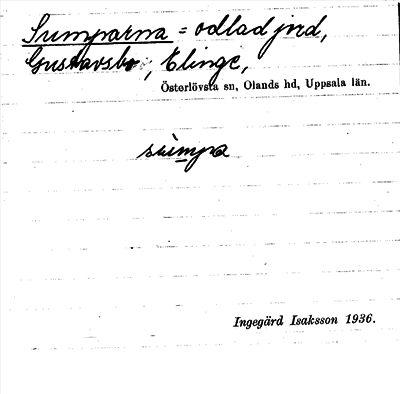 Sumparna = odlad jord,
Gustavsbo, Elinge,
Österlövsta sn, Olands hd, Uppsala län.
sùmpa
Ingegärd Isaksson 1936.